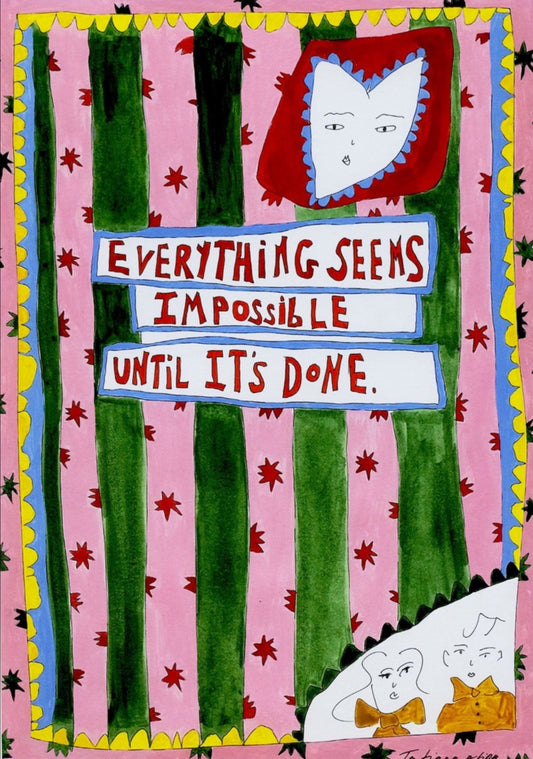 EVERYTHiNG SEEMS
IMPOSSiBLE
UNTiL IT'S DONE.